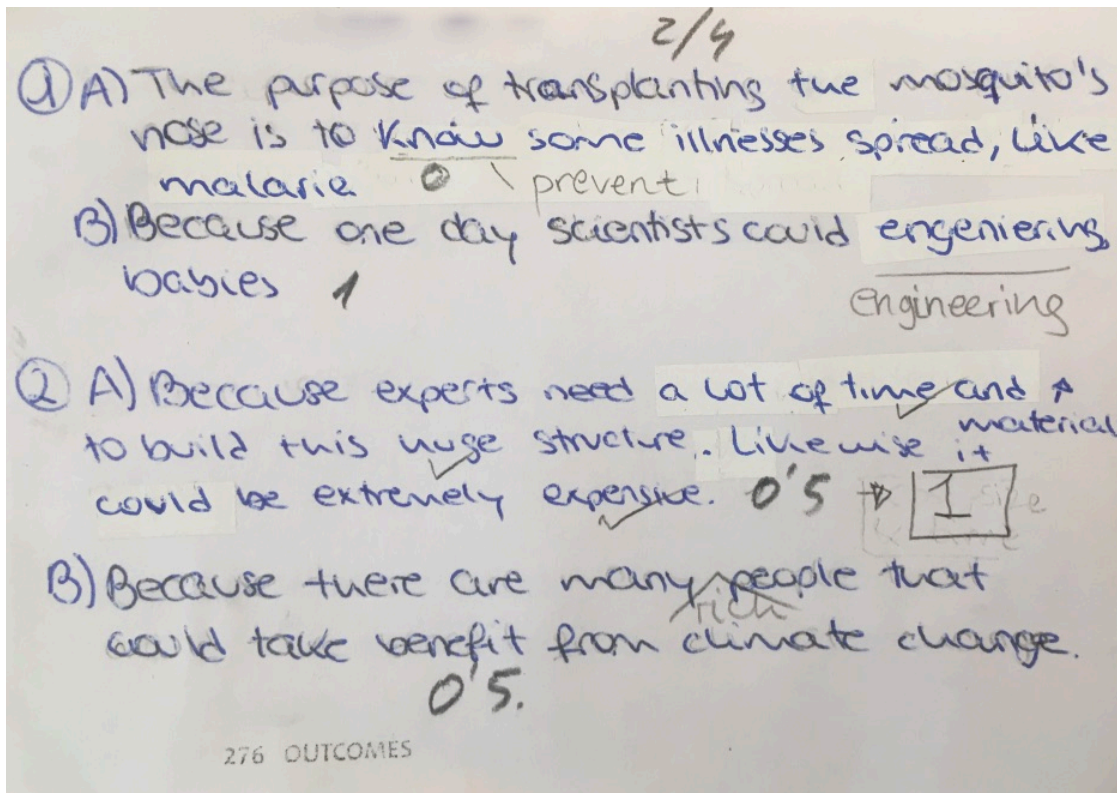 2/4
① A) The purpose of transplanting the mosquito's
nose is to know some illnesses spread, like
malaria 0 \ prevent
B) Because one day scientists could engeniering
babies 1
engineering
② A) Because experts need a lot of time and
material
to build this huge structure. Likewise it
could be extremely expensive. 0'5 → 1
B) Because there are many people that
rich
could take benefit from climate change.
0'5.
276 OUTCOMES